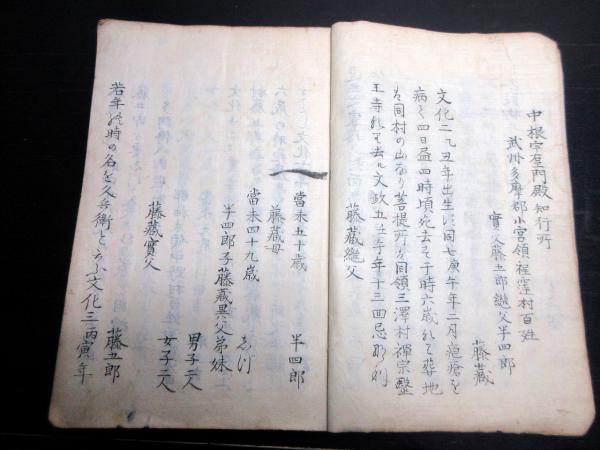 中根宇右衛門殿知行所
武州多摩郡小宮領程窪村百姓
實父藤五郎継父半四郎
藤藏
文化二乙丑年出生同七庚午年二月疱瘡を
病て四日昼四時頃死去于時六歳葬地
は同村の山なり菩提所は同領三澤村禅宗醫
王寺去ル文政五壬午年十三回忌
藤藏継父
半四郎
當未五十歳
藤藏母
しづ
當未四十九歳
半四郎子藤藏異父弟妹
男子二人
女子二人
藤藏實父
藤五郎
若年の時の名を久兵衛といふ文化三丙寅年